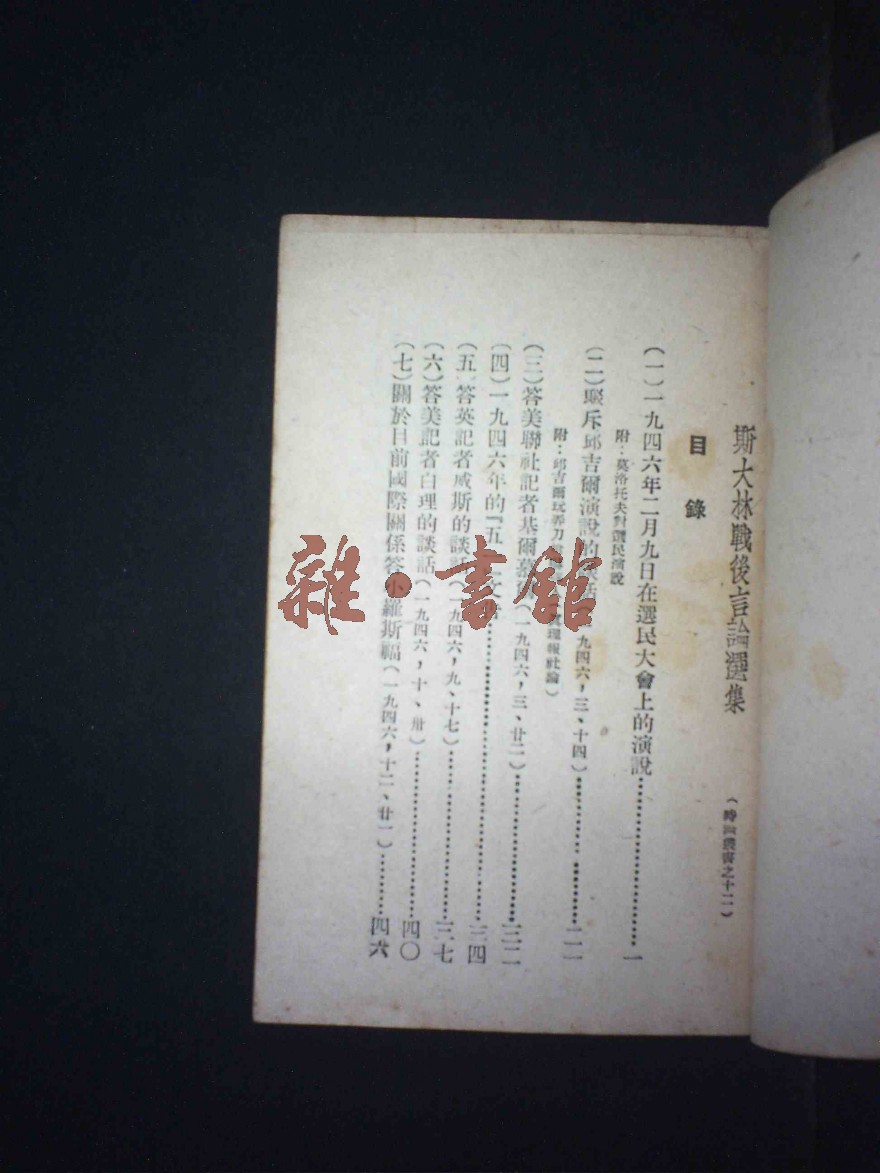 斯大林戰後言論選集
（時叢書之十二）
目錄
（一）一九四六年二月九日在選民大會上的演說⋯⋯一
附：莫洛托夫對選民演說
（二）駁斥邱吉爾演說的談話（一九四六，三、十四）⋯⋯二一
附：邱吉爾玩弄刀（真理報社論）
（三）答美聯社記者基爾（一九四六，三、廿二）⋯⋯三二
（四）一九四六年的『五一』文告⋯⋯三四
（五）答英記者威斯的談話（一九四六，九、十七）⋯⋯三七
（六）答美記者白理的談話（一九四六，十、卅）⋯⋯四〇
（七）關於目前國際關係答小羅斯福（一九四六，十二、廿一）⋯⋯四六
雜·書館